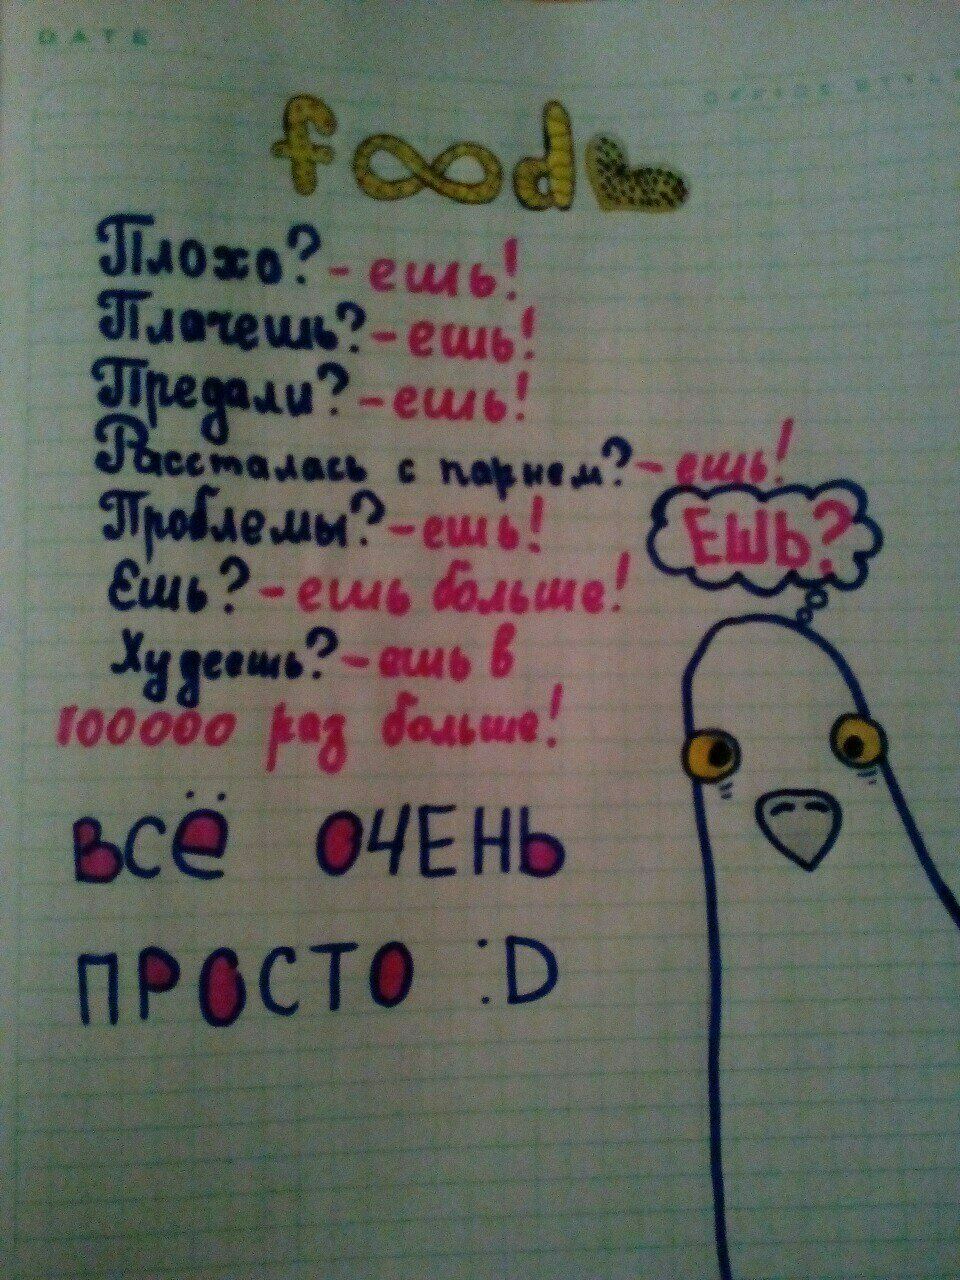 DATE
OFFICE STYLE
food
Плохо? - ешь!
Плачешь? - ешь!
Предали? - ешь!
Рассталась с парнем? - ешь!
Проблемы? - ешь!
Ешь? - ешь больше!
Худеешь? - ешь в
100000 раз больше!
ЕШЬ?
ВСЁ ОЧЕНЬ
ПРОСТО :D